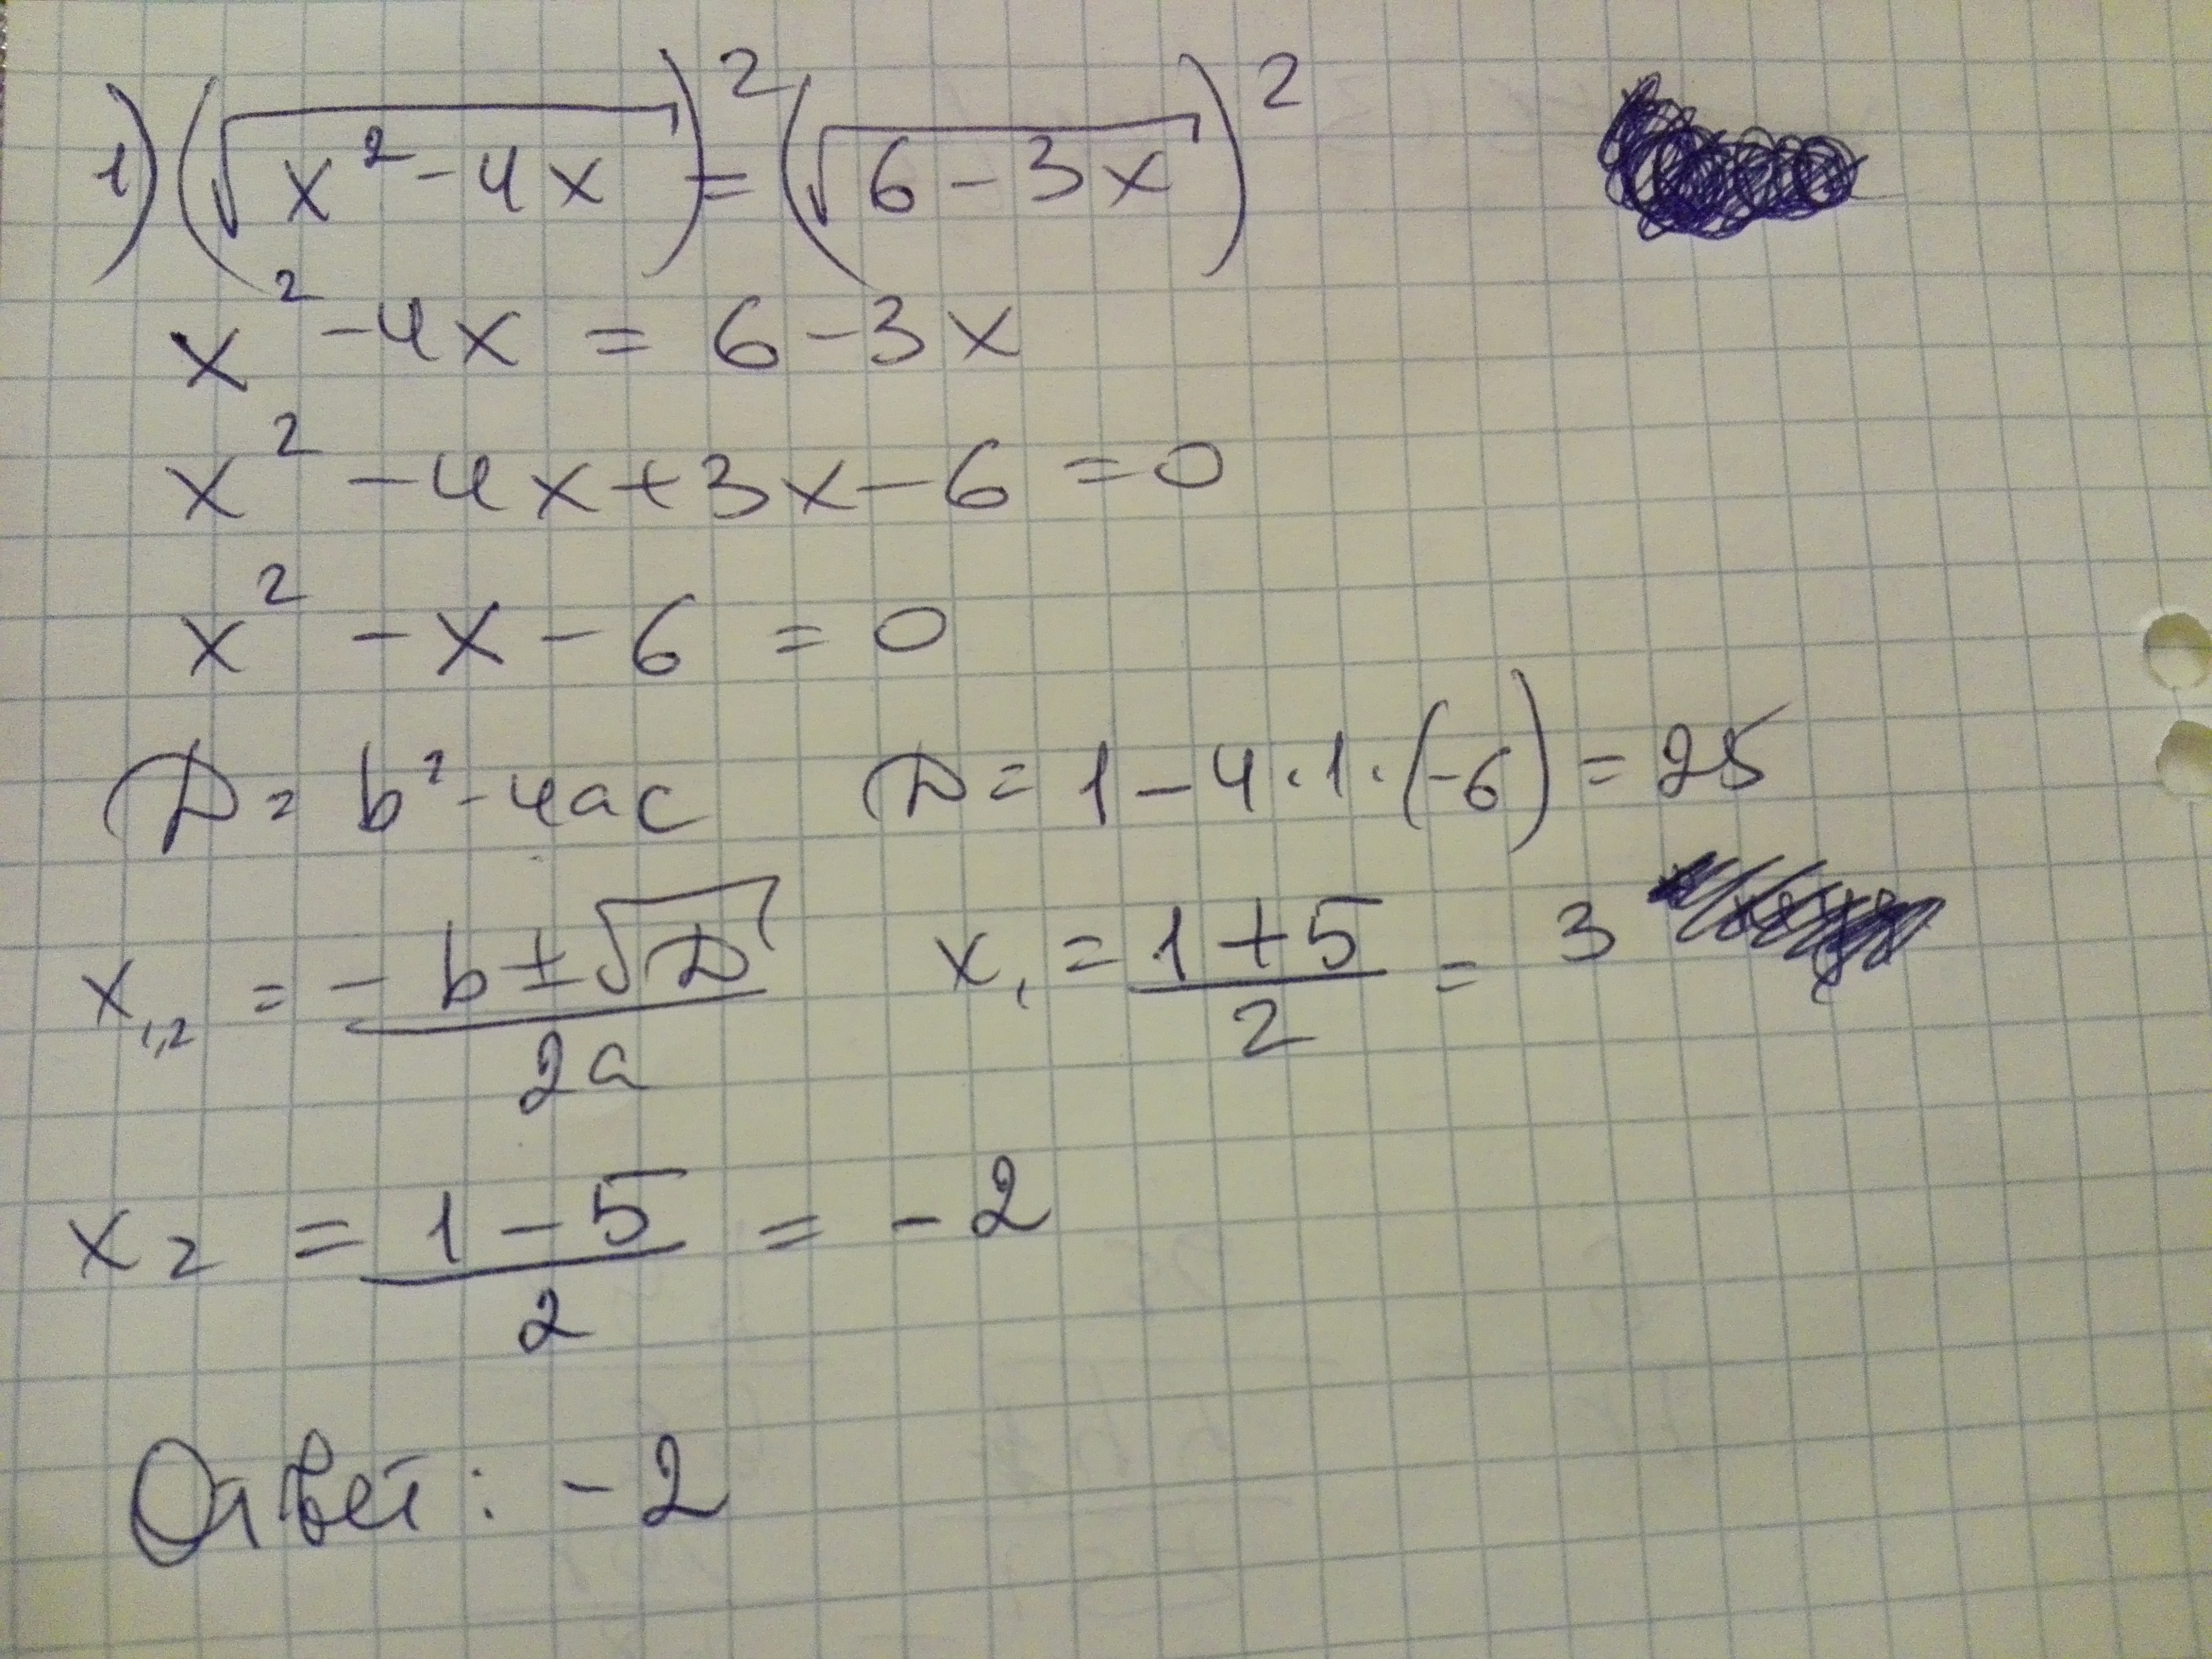 1) (√(x² - 4x))² = (√(6 - 3x))²
x² - 4x = 6 - 3x
x² - 4x + 3x - 6 = 0
x² - x - 6 = 0
D = b² - 4ac D = 1 - 4·1·(-6) = 25
x₁,₂ = (-b ± √D)/2a x₁ = (1 + 5)/2 = 3
x₂ = (1 - 5)/2 = -2
Ответ: -2